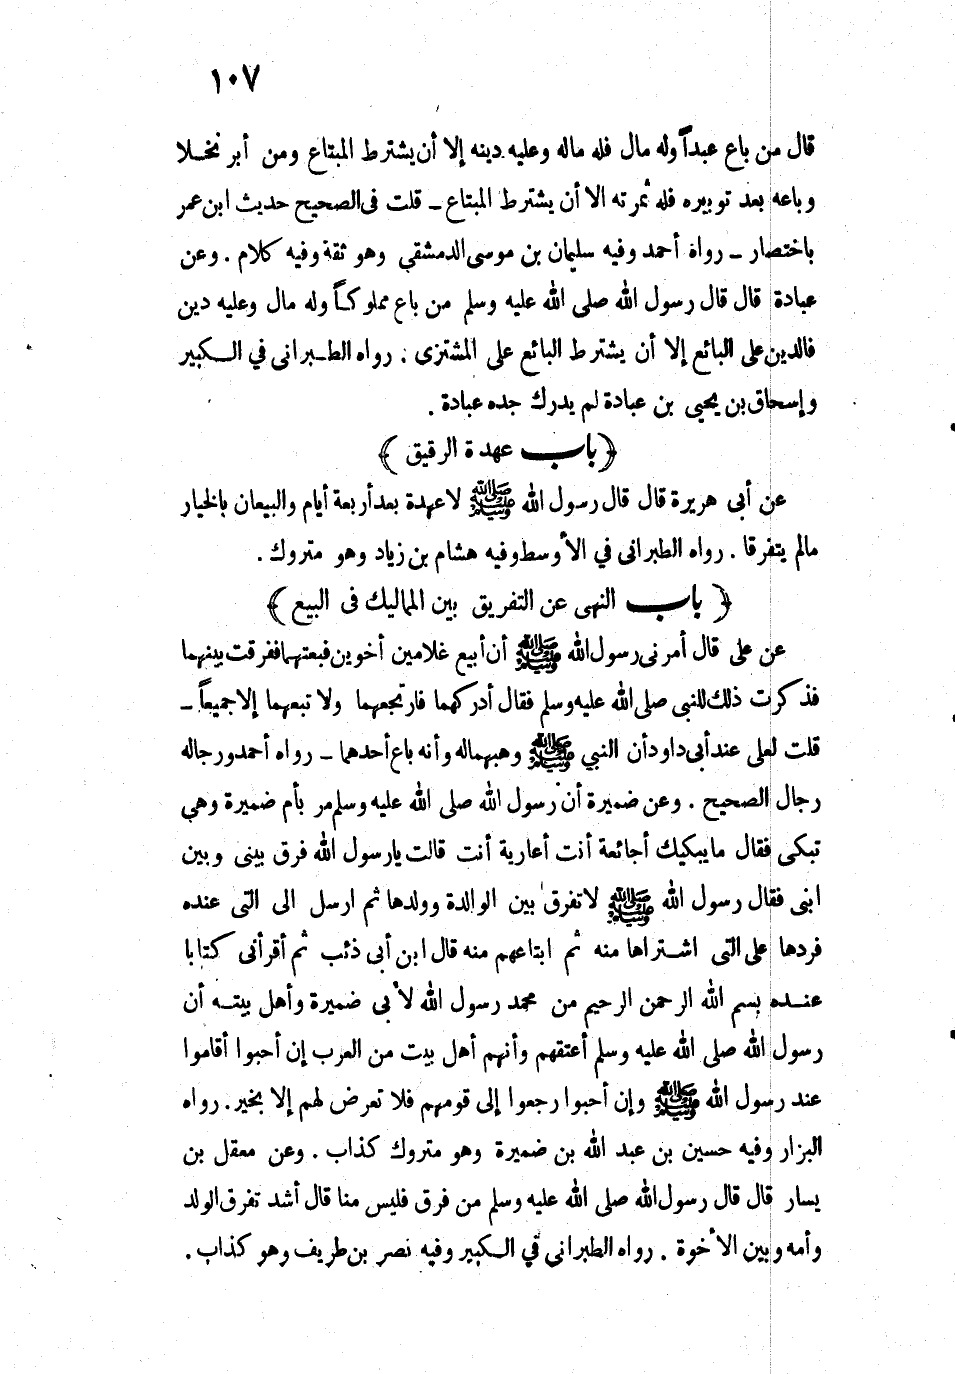 ١٠٧
قال من باع عبداً وله مال فله ماله وعليه دينه إلا أن يشترط المبتاع ومن أبر نخلا
وباعه بعد توبيره فله ثمرته الا أن يشترط المبتاع ـ قلت فى الصحيح حديث ابن عمر
باختصار ـ رواه أحمد وفيه سليمان بن موسى الدمشقي وهو ثقة وفيه كلام . وعن
عبادة قال قال رسول الله صلى الله عليه وسلم من باع مملوكاً وله مال وعليه دين
فالدين على البائع إلا أن يشترط البائع على المشترى . رواه الطبرانى في الكبير
وإسحاق بن يحيى بن عبادة لم يدرك جده عبادة .
﴿ باب عهدة الرقيق ﴾
عن أبى هريرة قال قال رسول الله ﷺ لا عهدة بعد أربعة أيام والبيعان بالخيار
مالم يتفرقا . رواه الطبرانى في الأوسط وفيه هشام بن زياد وهو متروك .
﴿ باب النهى عن التفريق بين المماليك فى البيع ﴾
عن على قال أمرنى رسول الله ﷺ أن أبيع غلامين أخوين فبعتهما ففرقت بينهما
فذكرت ذلك للنبى صلى الله عليه وسلم فقال أدركهما فارتجعهما ولا تبعهما إلا جميعاً ـ
قلت لعلى عند أبى داود أن النبي ﷺ وهبهما له وأنه باع أحدهما ـ رواه أحمد ورجاله
رجال الصحيح . وعن ضميرة أن رسول الله صلى الله عليه وسلم مر بأم ضميرة وهي
تبكى فقال ما يبكيك أجائعة أنت أعارية أنت قالت يارسول الله فرق بينى وبين
ابنى فقال رسول الله ﷺ لا تفرق بين الوالدة وولدها ثم ارسل الى التى عنده
فردها على التى اشتراها منه ثم ابتاعهم منه قال ابن أبى ذئب ثم أقرأنى كتابا
عنده بسم الله الرحمن الرحيم من محمد رسول الله لأبى ضميرة وأهل بيته أن
رسول الله صلى الله عليه وسلم أعتقهم وأنهم أهل بيت من العرب إن أحبوا أقاموا
عند رسول الله ﷺ وإن أحبوا رجعوا إلى قومهم فلا تعرض لهم إلا بخير . رواه
البزار وفيه حسين بن عبد الله بن ضميرة وهو متروك كذاب . وعن معقل بن
يسار قال قال رسول الله صلى الله عليه وسلم من فرق فليس منا قال أشد تفرق الولد
وأمه وبين الأخوة . رواه الطبرانى في الكبير وفيه نصر بن طريف وهو كذاب .